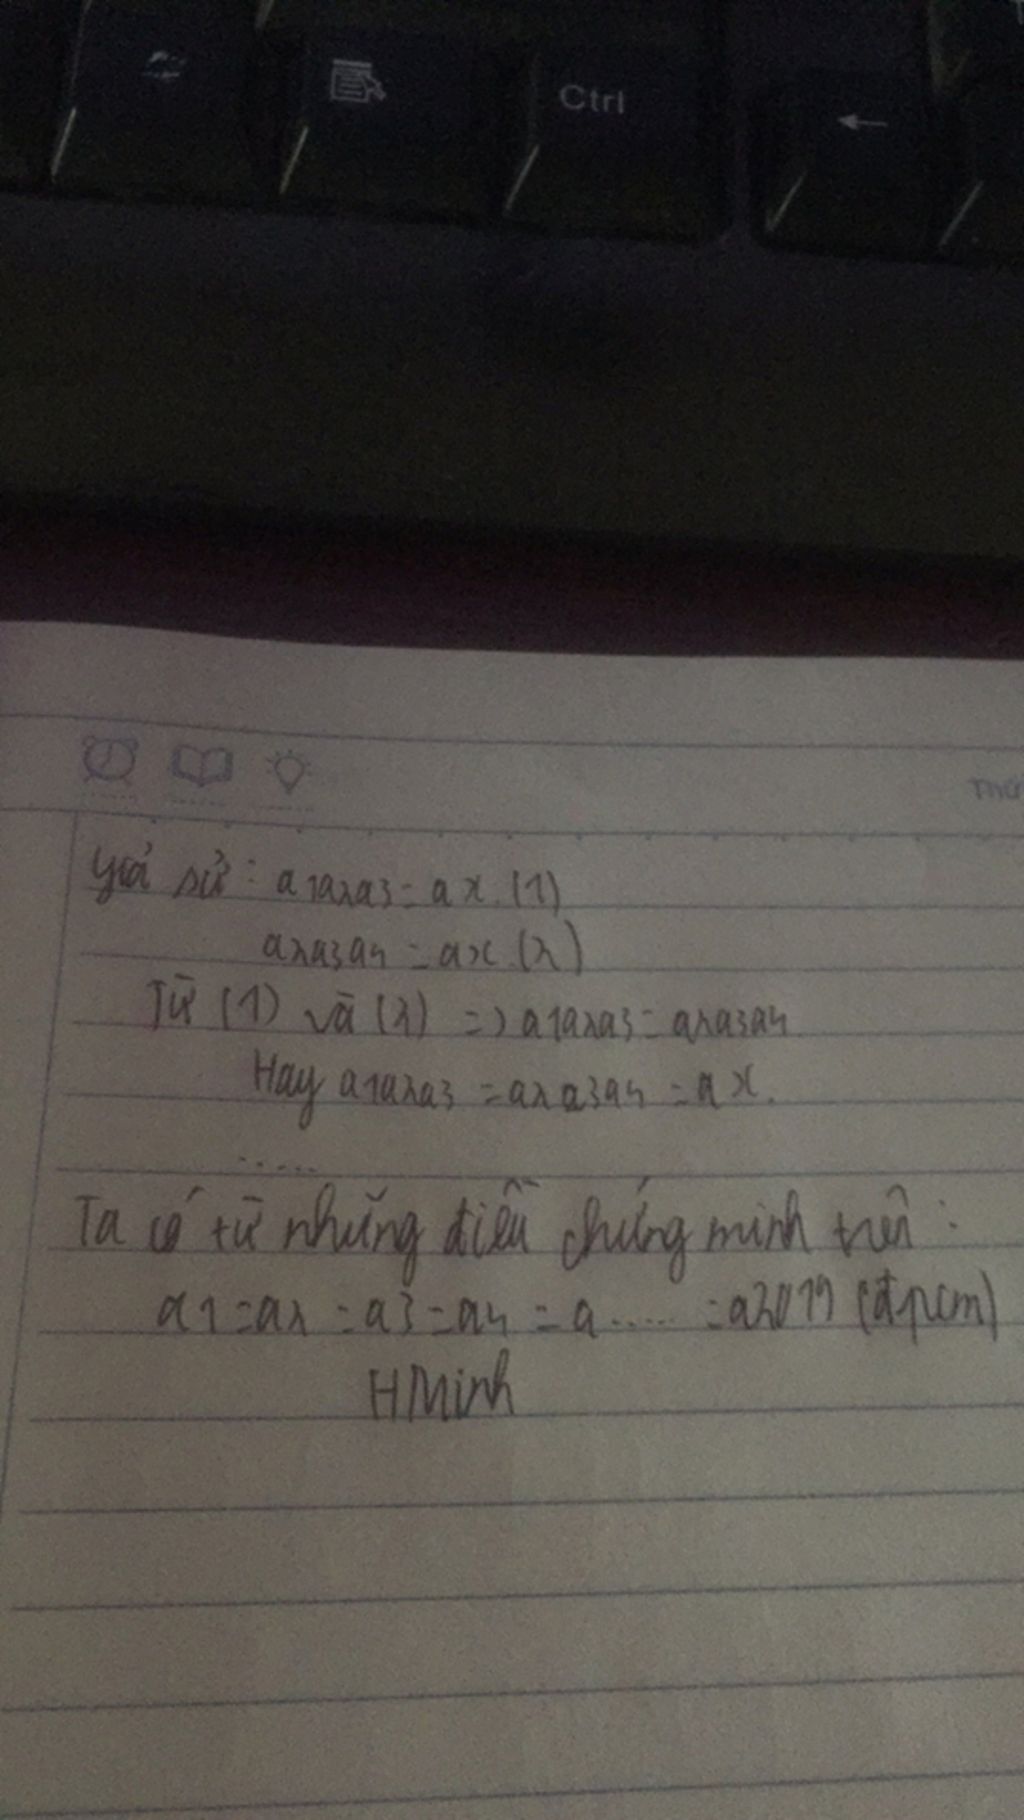 Ctrl
←
Thứ
Giả sử: a1a2a3 = ax.(1)
a2a3a4 = ax.(2)
Từ (1) và (2) => a1a2a3 = a2a3a4
Hay a1a2a3 = a2a3a4 = ax.
.....
Ta có từ những điều chứng minh trên:
a1 = a2 = a3 = a4 = a..... = a2019 (đpcm)
HMinh